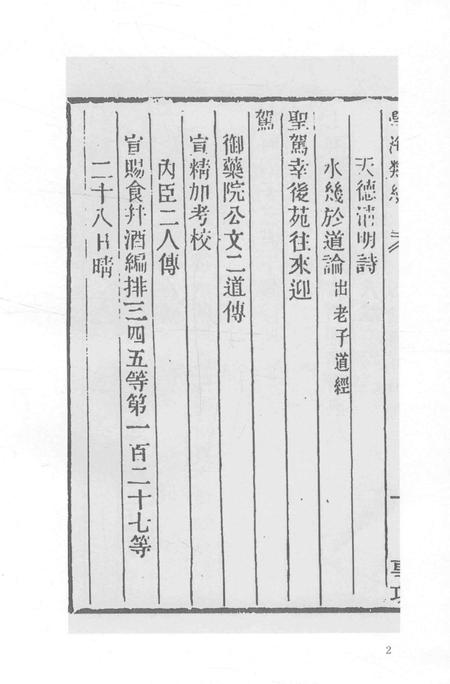 學海類編
天德清明詩
水幾於道論出老子道經
聖駕幸後苑往來迎
駕
御藥院公文二道傳
宣精加考校
內臣二人傳
宣賜食幷酒編排三四五等第一百二十七等
二十八日晴
2